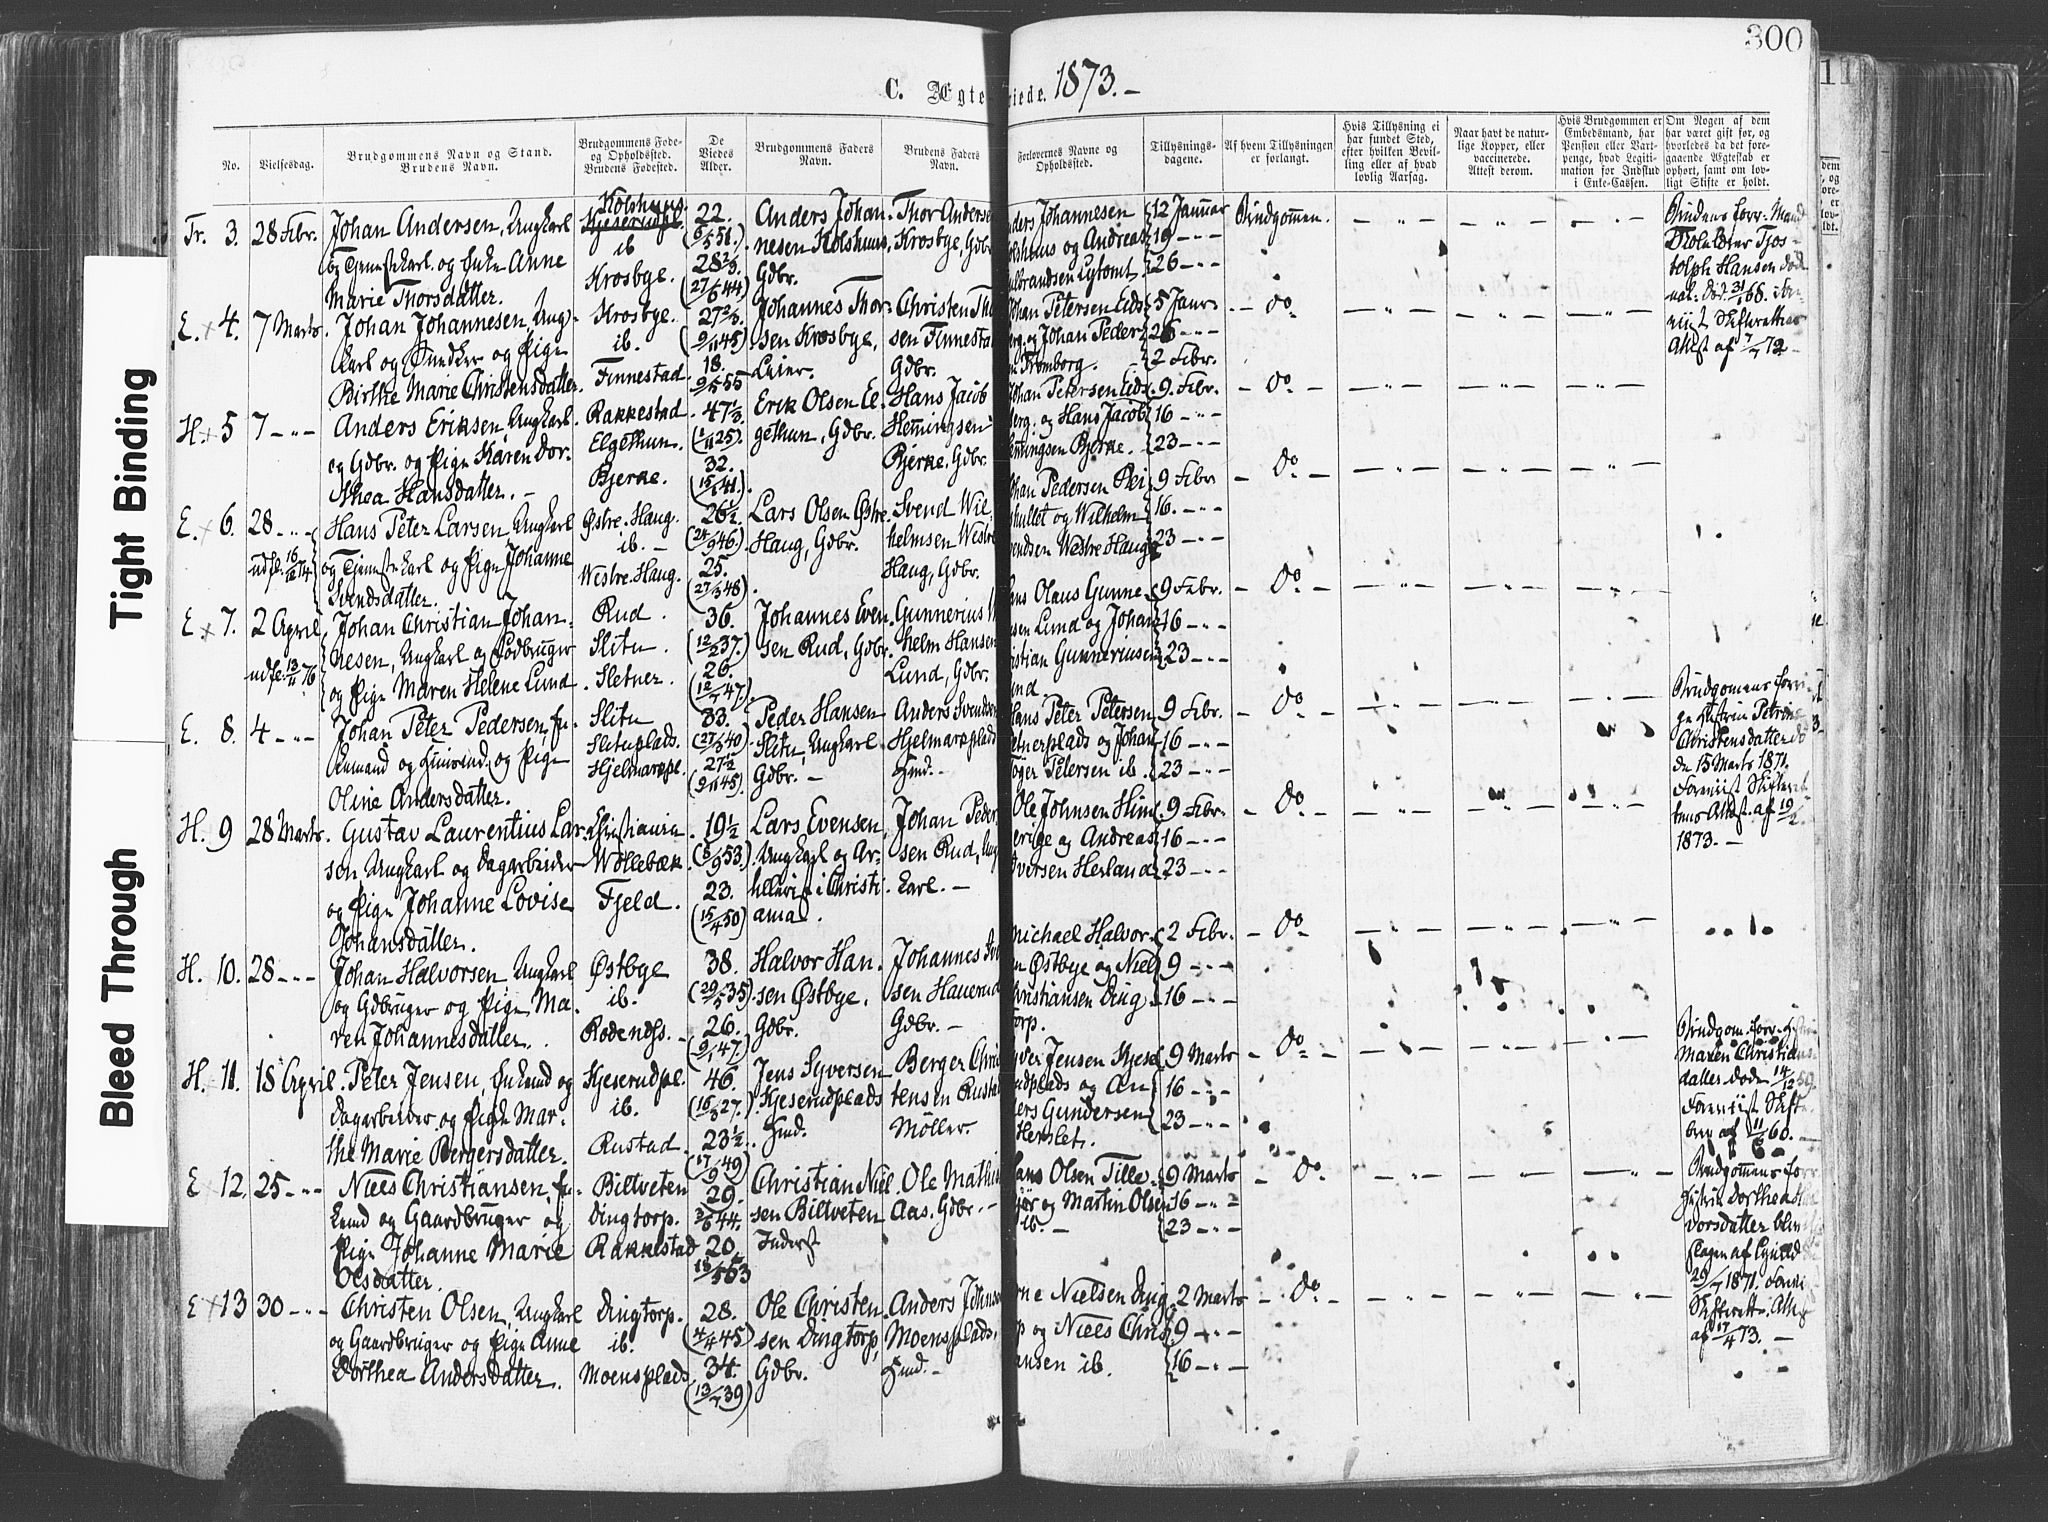 300
11
C. Ægte viede. 1873.-
Tight Binding
Bleed Through
No.
Vielsesdag.
Brudgommens Navn og Stand.
Brudens Navn.
Brudgommens Føde-
og Opholdssted.
Brudens Fødested.
De
Viedes
Alder.
Brudgommens Faders
Navn.
Brudens Faders
Navn.
Forlovernes Navne og
Opholdssted.
Tillysnings-
dagene.
Af hvem Tillysningen
er forlangt.
Hvis Tillysning ei
har fundet Sted,
efter hvilken Bevil-
ling eller af hvad
lovlig Aarsag.
Naar havt de natur-
lige Kopper, eller
vaccinerede.
Attest derom.
Hvis Brudgommen er
Embedsmand, har
Pension eller Vart-
penge, hvad Legiti-
mation for Indskud
i Enke-Cassen.
Om Nogen af dem
har været gift før, og
hvorledes da det fore-
gaaende Ægteskab er
ophørt, samt om lov-
ligt Skifte er holdt.
Fr. 3. 28 Febr.
Johan Andersen, Ungkarl
og Tjenestekarl og Enke Anne
Marie Thorsdatter.
Kolshuus.
Kjeserudpl.
ib
Krosbye.
22.
(6/5 51.)
28 2/3.
(27/6 44)
Anders Johan-
nesen Kolshuus,
Gdbr.
Thor Andersen
Krosbye, Gdbr
nders Johannesen
olshuus og Andreas
ulbrandsen Lytomt
12 Januar
19 - „ -
26 - „ -
Brudgommen.
Brudens forr. Mand
Tjos-
tolph Hansen død
31/1 68.
Attest af 1/7 72
E. x 4. 7 Marts.
Johan Johannesen, Ung-
karl og Snedker og Pige
Birthe Marie Christensdatter.
Krosbye.
ib.
Finnestad.
27 2/3.
(9/11 45)
18.
9/5 55
Johannes Thor-
sen Krosbye,
Leier.
Christen Tho
sen Finnestad
Gdbr.
Johan Petersen Eids
berg. og Johan Peder
n Tromborg.
5 Janr
26 - „ -
2 Febr.
- Do -
H. x 5 7 - „ -
Anders Eriksen, Ungkarl
og Gdbr. og Pige Karen Dor-
thea Hansdatter. -
Rakkestad
Elgethun.
Bjerke.
47 1/3
(1/11 25).
32.
(15/1 41.)
Erik Olsen El-
gethun, Gdbr.
Hans Jacob
Hemingsen
Bjerke, Gdbr.
Johan Petersen Eids
berg. og Hans Jacob
emingsen Bjerke.
9. Febr.
16 - „ -
23 - „ -
- Do -
E. x 6. 28 - „ -
udfl: 16/12 74
Hans Peter Larsen, Ungkarl
og Tjenestekarl og Pige Johanne
Svendsdatter.
Østre. Haug.
ib. -
Westre. Haug.
26 1/2
(24/9 46.)
25.
(27/3 48)
Lars Olsen Østre
Haug, Gdbr.
Svend Wil
helmsen Westre
Haug, Gdbr.
Johan Pedersen
og Wilhelm
vendsen Westre Haug
9 Febr
16. - „ -
23 - „ -
- Do -
E x 7. 2 April
udfl: 13/11 76
Johan Christian Johan-
nesen, Ungkarl og Jodbruger
og Pige Maren Helene Lund
Rud.
Slitu.
Sletner.
36.
(12/2 37.)
26.
(12/7 47.)
Johannes Even
sen Rud, Gdbr.
Gunnerius W
helm Hansen
Lund, Gdbr.
ans Olaus Gunne
sen Lund og Johan
ristian Gunneriusen
und.
9 Febr.
16 - „ -
23 - „ -
- Do -
E. 8. 4 - „ -
Johan Peter Pedersen, En-
kemand og Huusmd. og Pige
Oline Andersdatter.
Slitu
Slituplads.
Hjelmarkpl.
33.
(27/3 40)
27 1/2
(9/11 45)
Peder Hansen
Slitu, Ungkarl
Gdbr. -
Anders Svendsen
Hjelmarkplads
Hmd. -
Hans Peter Petersen
etnerplads og Johan
Petersen ib.
9 Febr.
16 - „ -
23 - „ -
- Do -
Brudgomens forri-
ge Hustru Petrine
Christensdatter dø
de 15 Marts 1871.
Forevist Skifteret
tens Attest af 19/2
1873. -
H. 9 28 Marts.
Gustav Laurentius Lar-
sen, Ungkarl og Dagarbeider
og Pige Johanne Lovise
Johansdatter.
Christiania
Wollebæk.
Fjeld.
19 1/2
(5/9 53.)
23.
(15/4 50)
Lars Evensen,
Ungkarl og Ar-
i Christi-
ania.
Johan Peder
sen Rud, Ung
karl. -
Ole Johnsen Him
og Andreas
versen Herland
9 Febr.
16 - „ -
23 - „ -
- Do -
H. 10. 28 - „ -
Johan Halvorsen, Ungkarl
og Gdbruger og Pige Ma-
ren Johannesdatter.
Østbye
ib.
Rodenæss.
38.
(29/5 35)
26.
(9/1 47.)
Halvor Han-
sen Østbye,
Gdbr.
Johannes
sen Hauerud
Gdbr. -
Michael Halvor-
n Østbye og Niels
Christiansen Ding
torp.
2 Febr.
9 - „ -
16 - „ -
- Do -
H. 11. 18 April.
Peter Jensen, Enkemd og
Dagarbeider og Pige Mar-
the Marie Bergersdatter.
Kjeserudpl.
ib.
Rustad.
46.
(16/3 27.)
23 1/2
(17/9 49)
Jens Syversen
Kjeserudplads
Hmd.
Berger Chris
tensen Rustad
Møller.
yver Jensen Kjese
udplads og An-
ders Gundersen
Herslet.
9 Marts
16 - „ -
23 - „ -
- Do -
Brudgom. forr. Hustru
Maren Christians
datter døde 14/12 59.
Forevist Skifte-
brev af 11/6 60.
E x 12. 25 - „ -
Niels Christiansen, En-
kemd og Gaardbruger og
Pige Johanne Marie
Olsdatter.
Biltveten
Dingtorp.
Rakkestad
29.
2/6 44.
20.
18/5 53
Christian Niel
sen Biltveten
Inderst
Ole Mathi
Aas. Gdbr. -
Hans Olsen Tille-
og Martin Olsen
ib. -
9 Marts
16 - „ -
23 - „ -
- Do -
Brudgommens forr
Hustru Dorthea Hal
vorsdatter blev ihjel
slagen af Lynild
29/7 1871. Forevi
Skifterette. Attest
af 17/4 73. -
E x 13 30 - „ -
Christen Olsen, Ungkarl
og Gaardbruger og Pige Anne
Dorthea Andersdatter.
Dingtorp.
ib.
Moensplads.
28.
(4/4 45)
34.
(13/7 39)
Ole Christen-
sen Dingtorp,
Gdbr.
Anders Johnsen
Moensplads,
Hmd. -
rne Nielsen Ding
p og Niels Chris
iansen ib.
2 Marts
9 - „ -
16 - „ -
- Do -